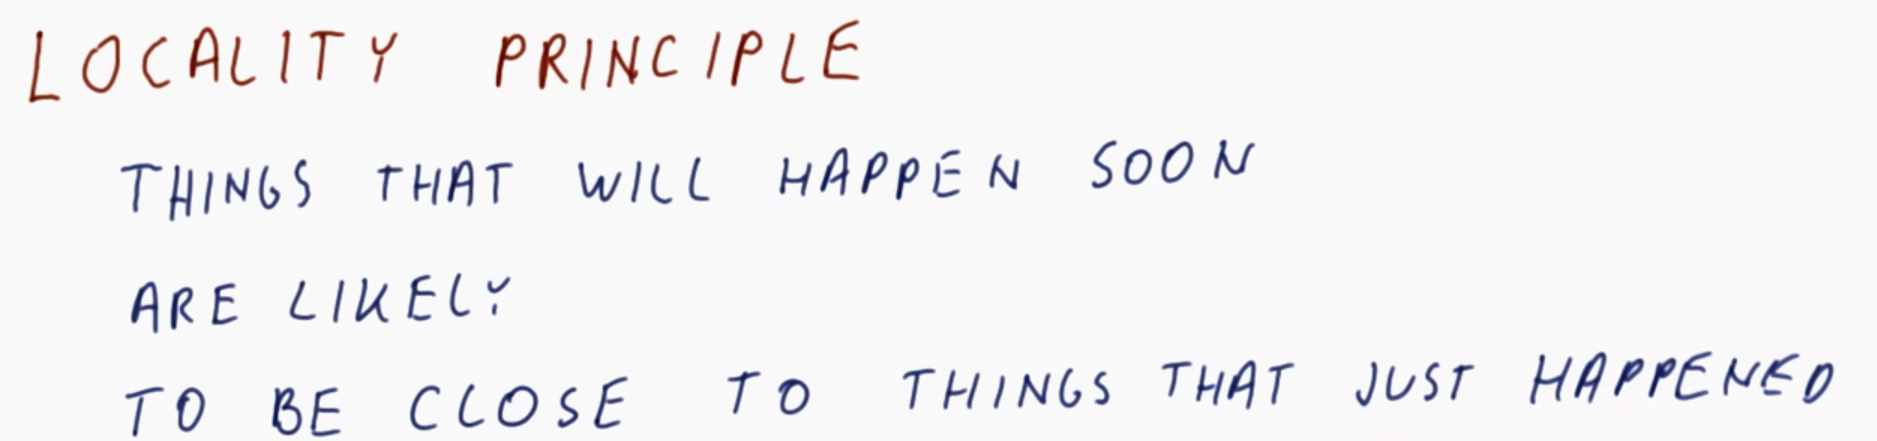 LOCALITY PRINCIPLE
THINGS THAT WILL HAPPEN SOON
ARE LIKELY
TO BE CLOSE TO THINGS THAT JUST HAPPENED